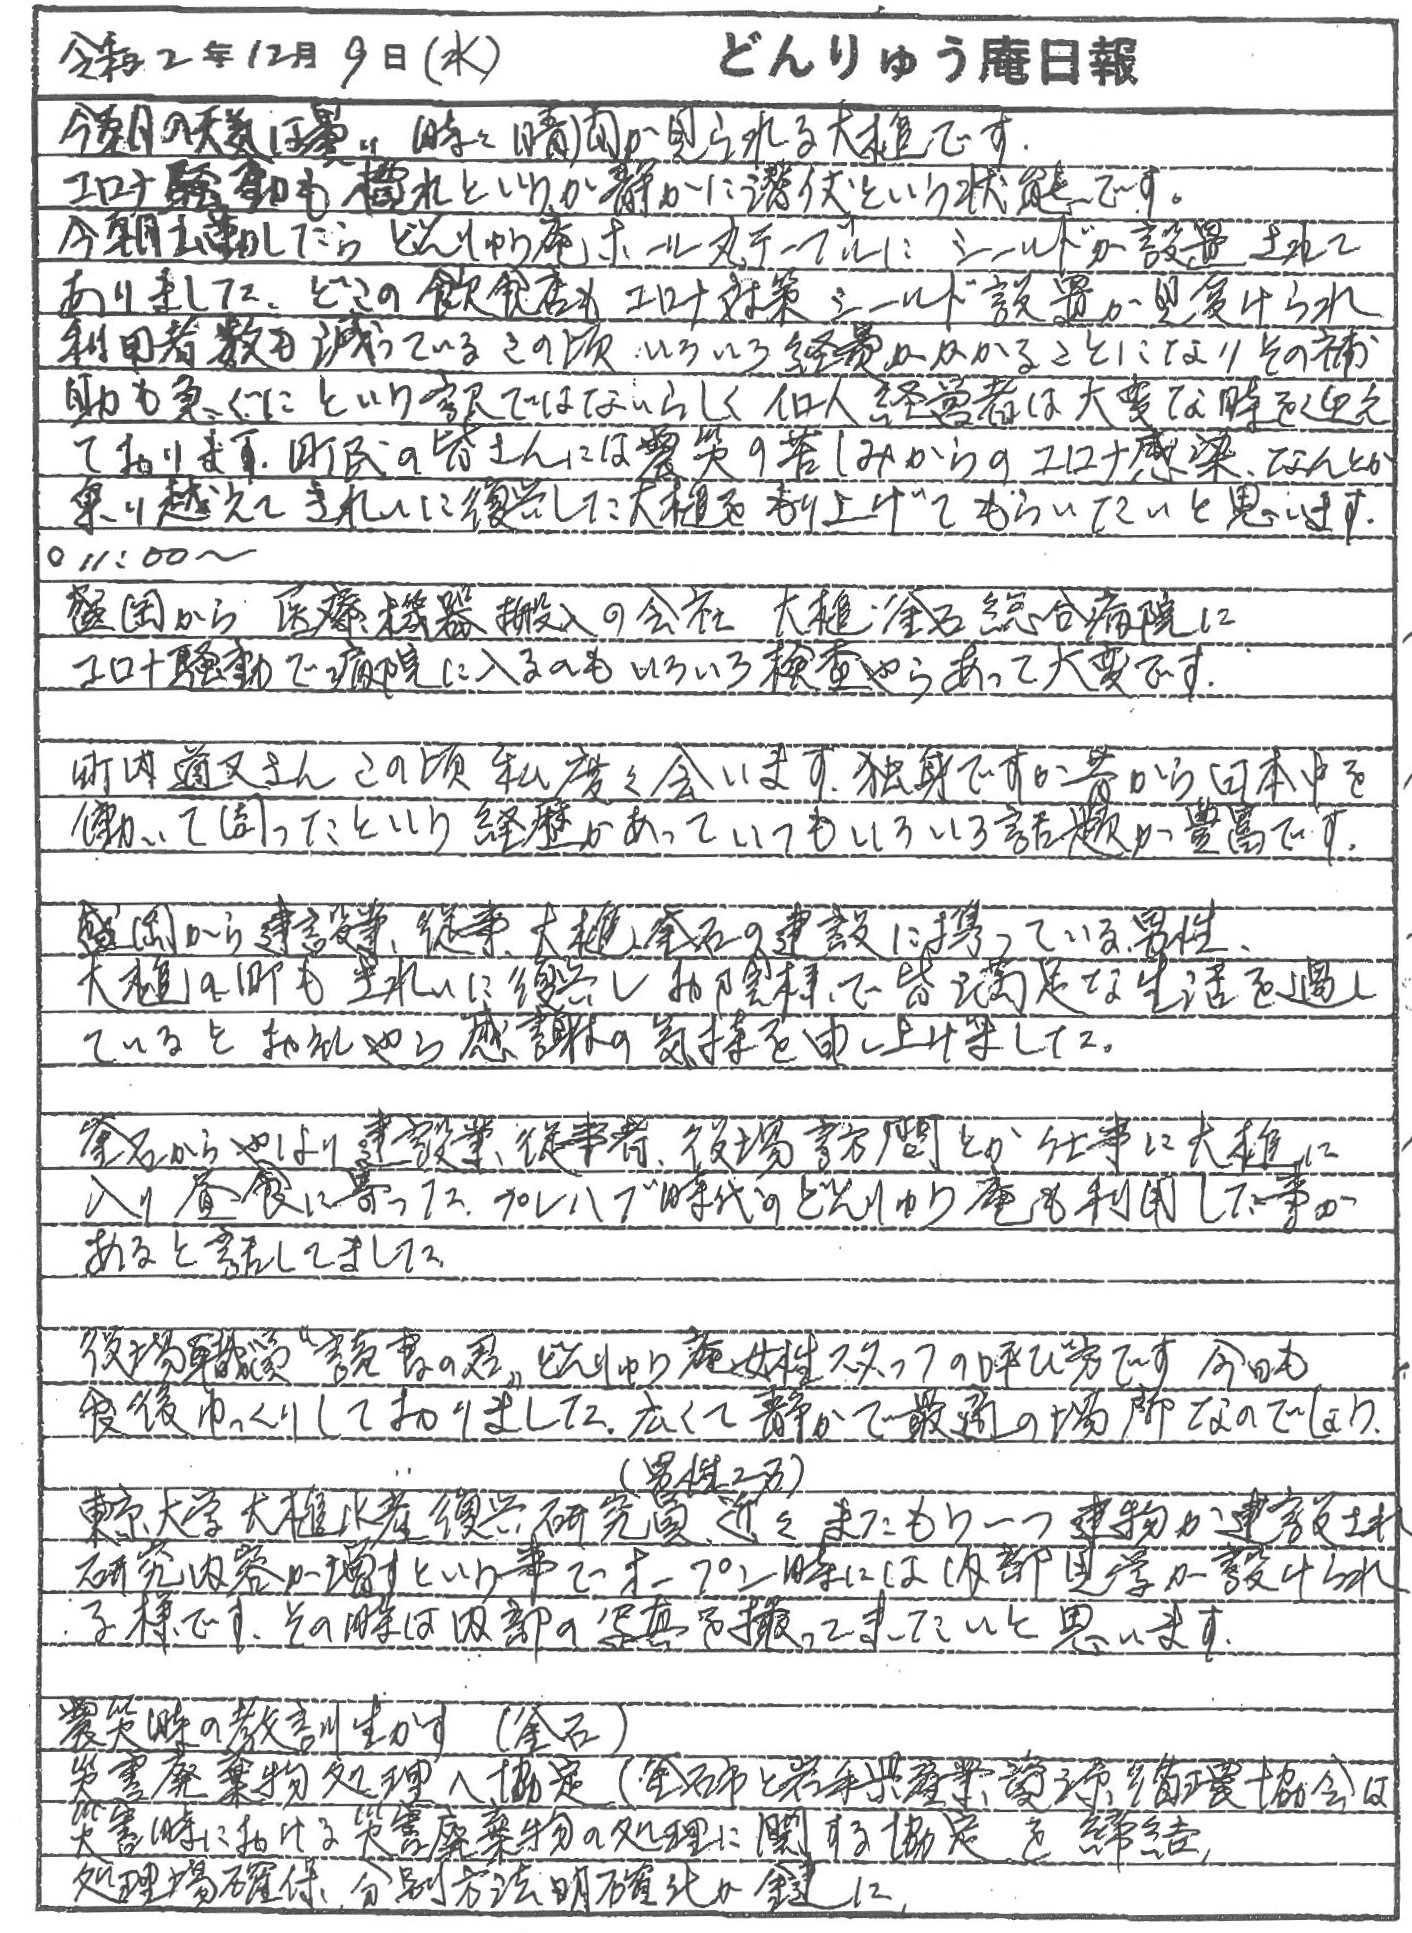 令和2年12月9日(水) どんりゅう庵日報
今朝の天気は曇り 時々晴間が見られる大槌です.
コロナ騒動も慣れというか静かに潜伏という状態です。
今朝出勤したら どんりゅう庵ホール丸テーブルに シールドが設置されて
ありました. どこの飲食店もコロナ対策シールド設置が見受けられ
利用者数も減っているこの頃 いろいろ経費がかかることになりその補
助も急ぐにという訳ではないらしく個人経営者は大変な時を迎え
ております. 町民の皆さんには震災の苦しみからのコロナ感染、なんとか
乗り越えてきれいに復興した大槌をもり上げてもらいたいと思います.
○11:00〜
盛岡から 医療機器搬入の会社 大槌・釜石総合病院に
コロナ騒動で病院に入るのもいろいろ検査やらあって大変です.
町内 道又さん この頃 私度々会います. 独身ですが昔から日本中を
働いて回ったという経歴があっていつもいろいろ話題が豊富です.
盛岡から建設業、従事、大槌、釜石の建設に携っている男性、
大槌の町もきれいに復興しお陰様で皆満足な生活を過し
ているとお礼やら感謝の気持を申し上げました。
釜石からやはり建設業、従事者、役場訪問とか仕事に大槌に
入り昼食に寄った. プレハブ時代のどんりゅう庵も利用した事が
あると話してました
役場職員“読書の君”どんりゅう庵女性スタッフの呼び方です 今日も
食後ゆっくりしておりました. 広くて静かで最適の場所なのでしょう.
(男性2名)
東京大学大槌水産復興研究員、近々またもう一つ建物が建設され
研究内容が増すという事で オープン時には内部見学が設けられ
る様です. その時は内部の写真を撮ってきたいと思います.
震災時の教訓生かす (釜石)
災害廃棄物処理へ協定(釜石市と岩手県産業資源循環協会)は
災害時における災害廃棄物の処理に関する協定を締結,
処理場確保、分別方法明確化が鍵に,